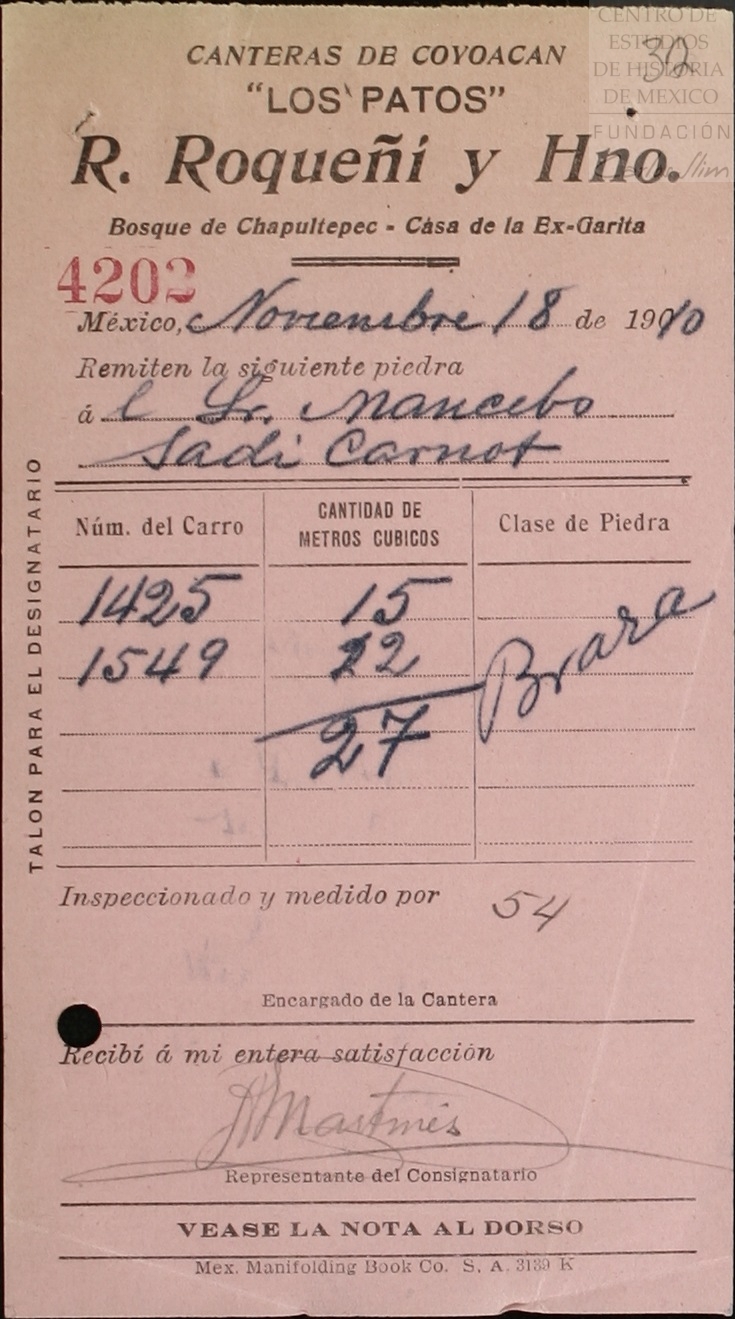 CENTRO DE
ESTUDIOS
DE HISTORIA
DE MEXICO
FUNDACIÓN
32
CANTERAS DE COYOACAN
"LOS PATOS"
R. Roqueñí y Hno.
Bosque de Chapultepec - Casa de la Ex-Garita
4202
México, Noviembre 18 de 1910
Remiten la siguiente piedra
á l Sr. Mancebo
Sadi Carnot
TALON PARA EL DESIGNATARIO
Núm. del Carro CANTIDAD DE METROS CUBICOS Clase de Piedra
1425 15 Braza
1549 22
27
Inspeccionado y medido por 54
Encargado de la Cantera
Recibí á mi entera satisfacción
Martinés
Representante del Consignatario
VEASE LA NOTA AL DORSO
Mex. Manifolding Book Co. S. A. 3139 K